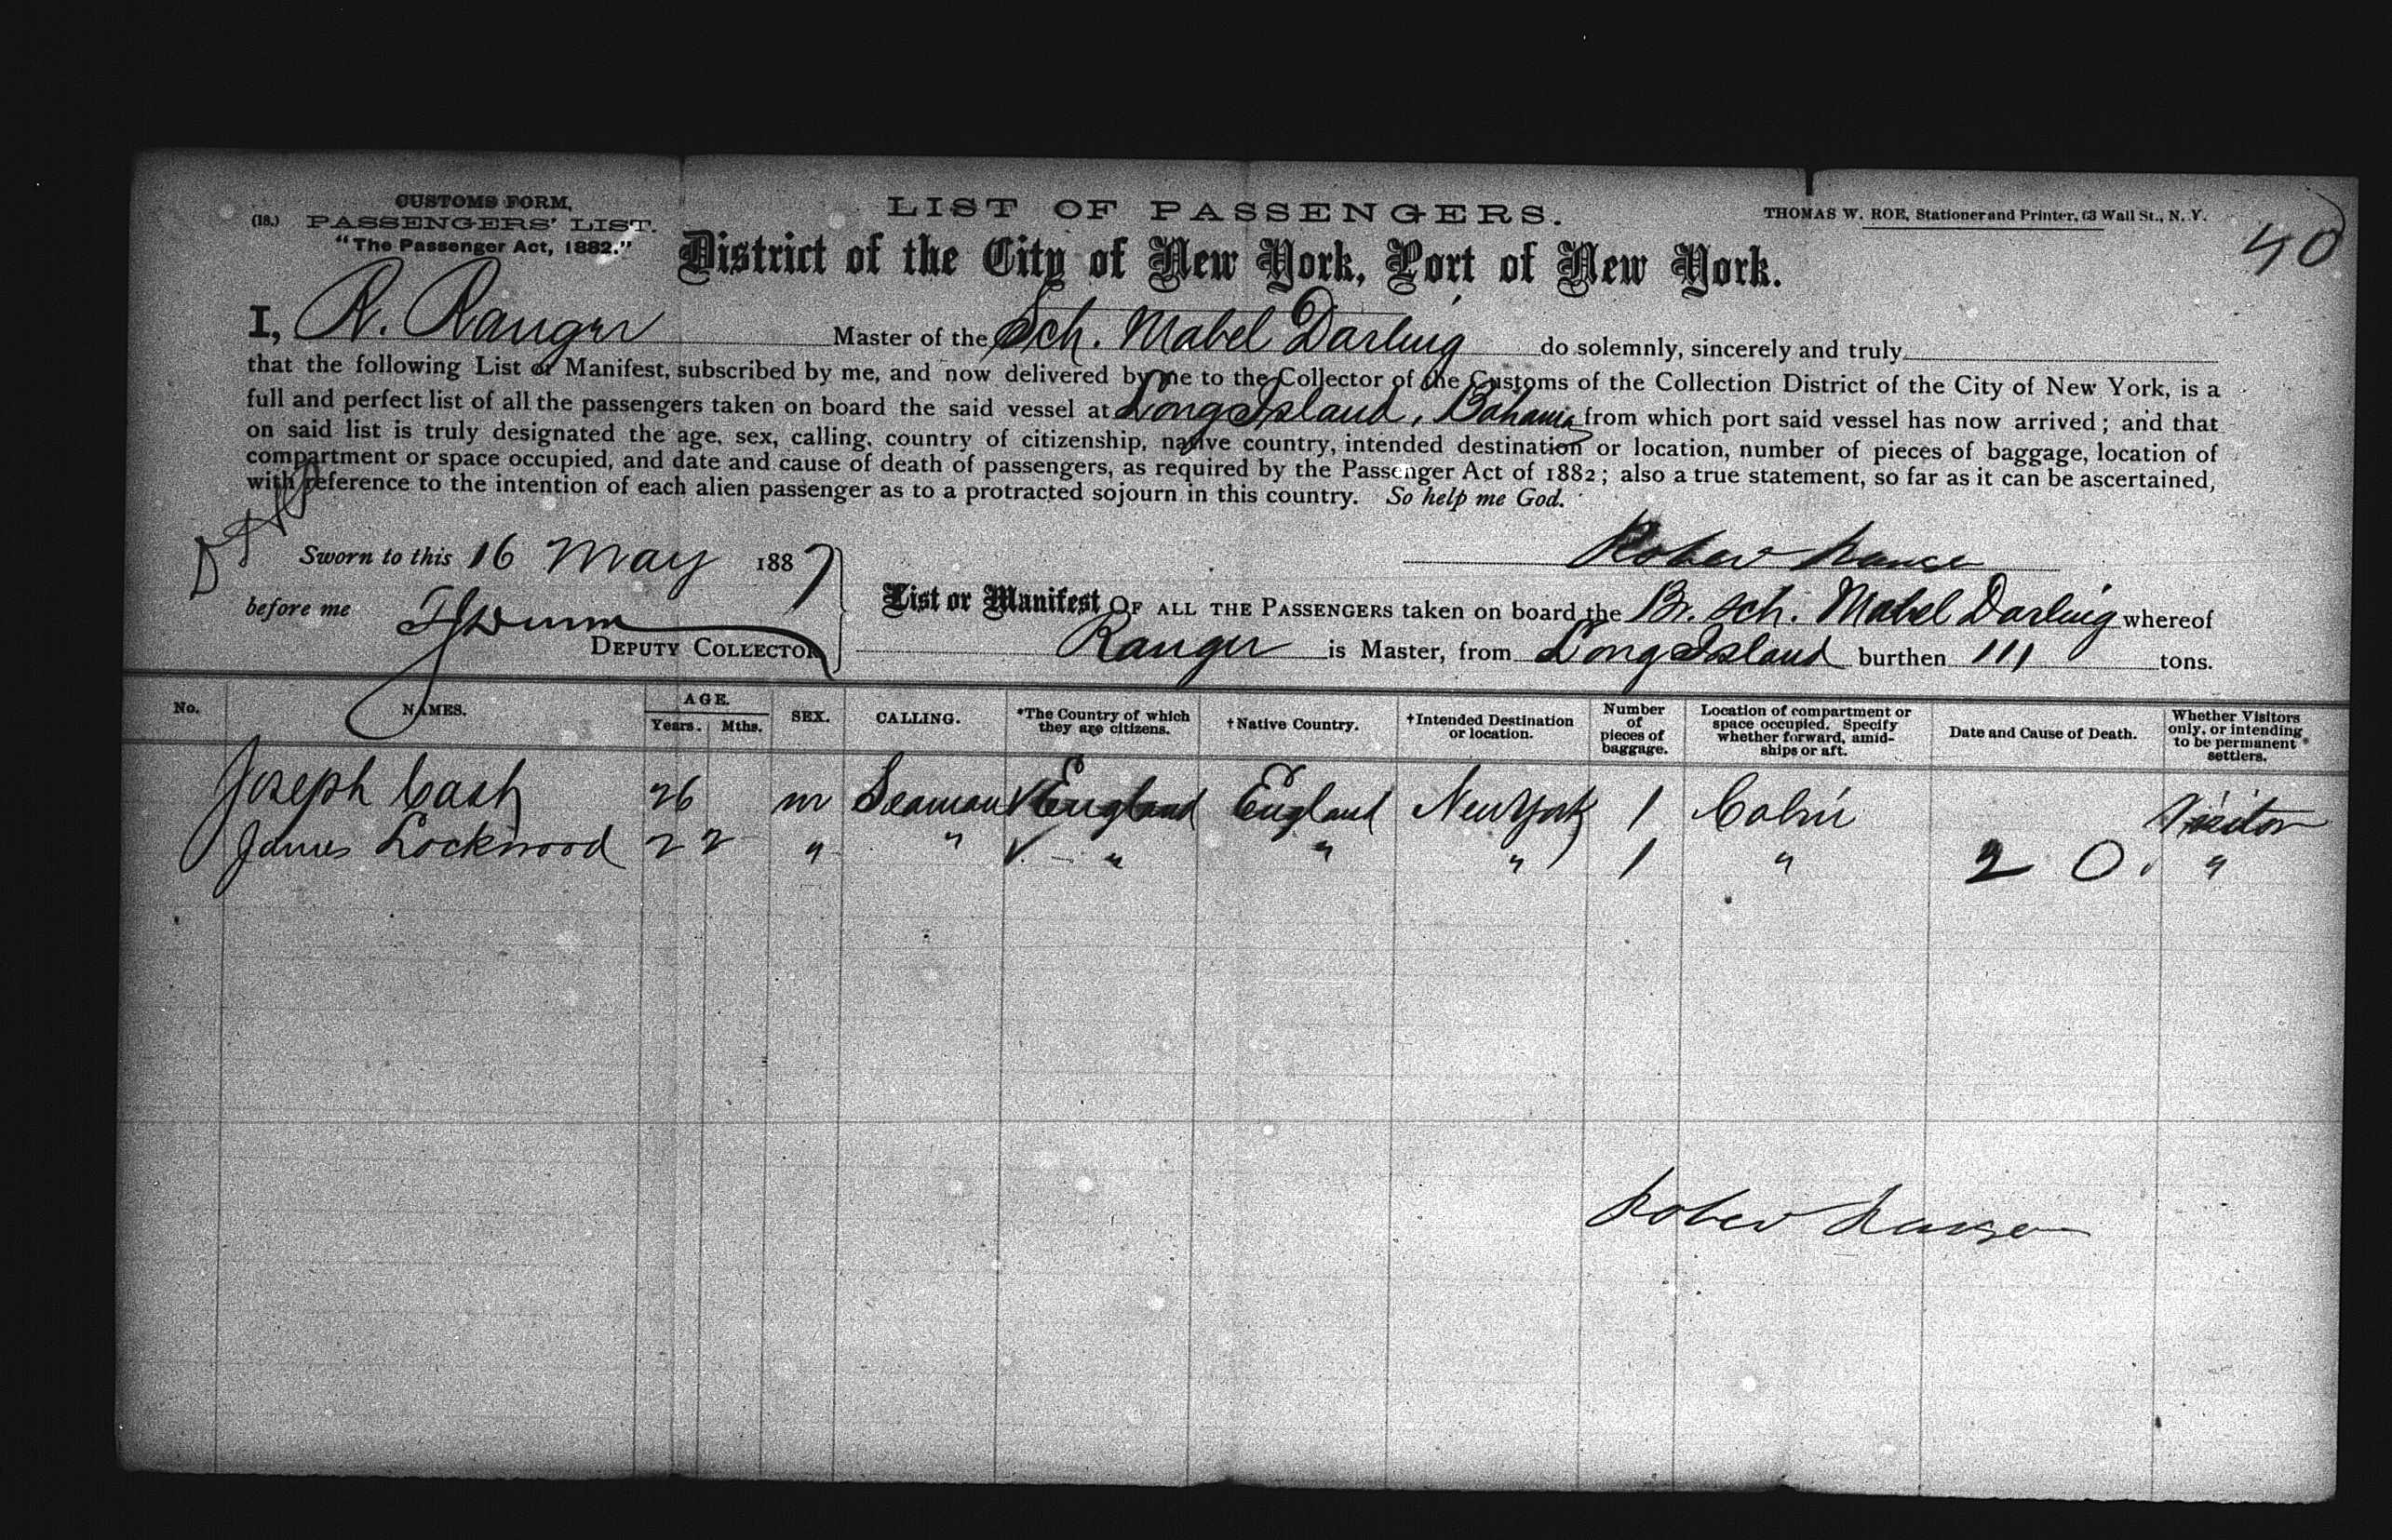 CUSTOMS FORM,
(18.) PASSENGERS' LIST.
"The Passenger Act, 1882."
LIST OF PASSENGERS.
THOMAS W. ROE, Stationer and Printer, 63 Wall St., N. Y.
40
District of the City of New York, Port of New York.
I, R. Ranger Master of the Sch. Mabel Darling do solemnly, sincerely and truly
that the following List or Manifest, subscribed by me, and now delivered by me to the Collector of the Customs of the Collection District of the City of New York, is a
full and perfect list of all the passengers taken on board the said vessel at Long Island, Bahama from which port said vessel has now arrived; and that
on said list is truly designated the age, sex, calling, country of citizenship, native country, intended destination or location, number of pieces of baggage, location of
compartment or space occupied, and date and cause of death of passengers, as required by the Passenger Act of 1882; also a true statement, so far as it can be ascertained,
with reference to the intention of each alien passenger as to a protracted sojourn in this country. So help me God.
Sworn to this 16 May 1887
before me
DEPUTY COLLECTOR
List or Manifest OF ALL THE PASSENGERS taken on board the Br. Sch. Mabel Darling whereof
Ranger is Master, from Long Island burthen 111 tons.
No. NAMES. AGE. Years. Mths. SEX. CALLING. *The Country of which they are citizens. †Native Country. †Intended Destination or location. Number of pieces of baggage. Location of compartment or space occupied. Specify whether forward, amidships or aft. Date and Cause of Death. Whether Visitors only, or intending to be permanent settlers.
Joseph Cash 26 m Seaman ✓ England England New York 1 Cabin Visitor
James Lockwood 22 " " ✓ " " " 1 " 2 0. "